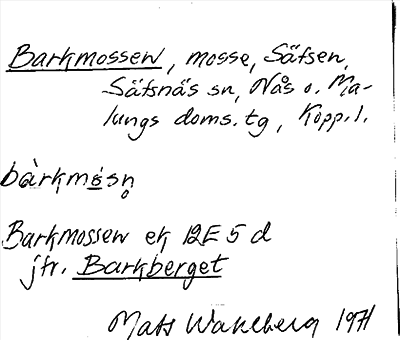 Barkmossen, mosse, Säfsen,
Säfsnäs sn, Nås o. Ma-
lungs doms. tg, Kopp. l.
bàrkmo̱sn̥
Barkmossen ek 12E 5 d
jfr. Barkberget
Mats Wahlberg 1971